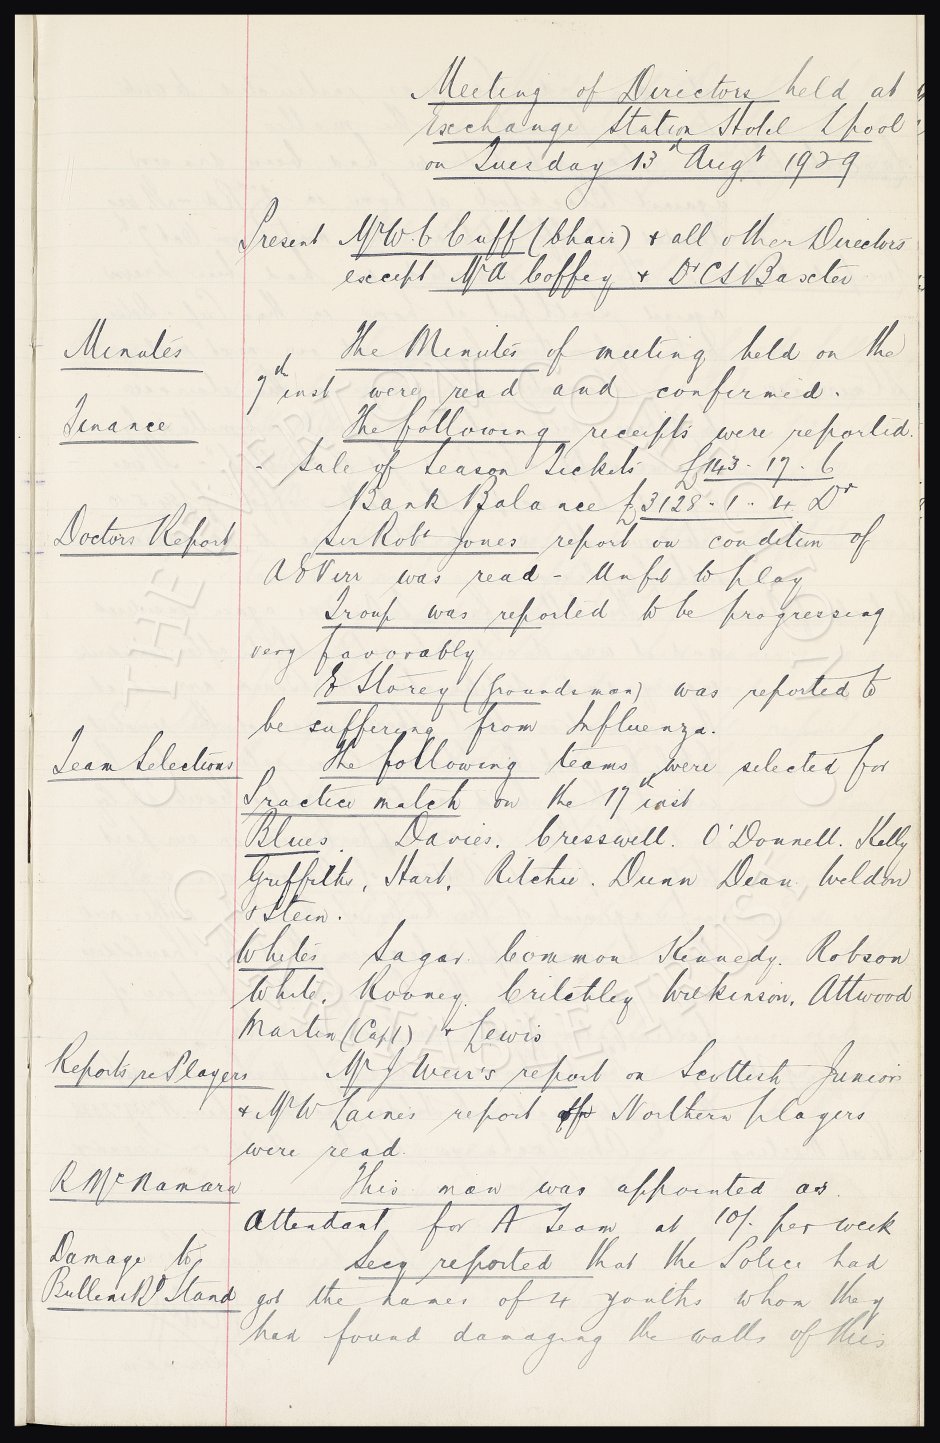 Meeting of Directors held at
Exchange Station Hotel Lpool
on Tuesday 13th Augt 1929
Present Mr W. C Cuff (Chair) + all other Directors
except Mr A Coffey + Dr C S Baxter
Minutes The Minutes of meeting held on the
7th inst were read and confirmed.
Finance The following receipts were reported.
- Sale of Season Tickets £143. 17. 6
Bank Balance £3128. 1. 4 Dr
Doctors Report Sir Robt Jones report on condition of
A E Virr was read - Unfit to play
Troup was reported to be progressing
very favorably
E Storey (Groundsman) was reported to
be suffering from Influenza.
Team Selections The following teams were selected for
Practice match on the 17th inst
Blues. Davies. Cresswell. O'Donnell. Kelly
Griffiths, Hart, Ritchie. Dunn Dean Weldon
+ Stein.
Whites Sagar. Common Kennedy. Robson
White. Rooney. Critchley Wilkinson. Attwood
Martin (Capt) + Lewis
Reports re Players Mr J Weir's report on Scottish Juniors
+ Mr W Laines report of Northern players
were read.
R McNamara This man was appointed as
Attendant for A Team at 10/. per week
Damage to Secy reported that the Police had
Bullens Rd Stand got the names of 4 youths whom they
had found damaging the walls of this